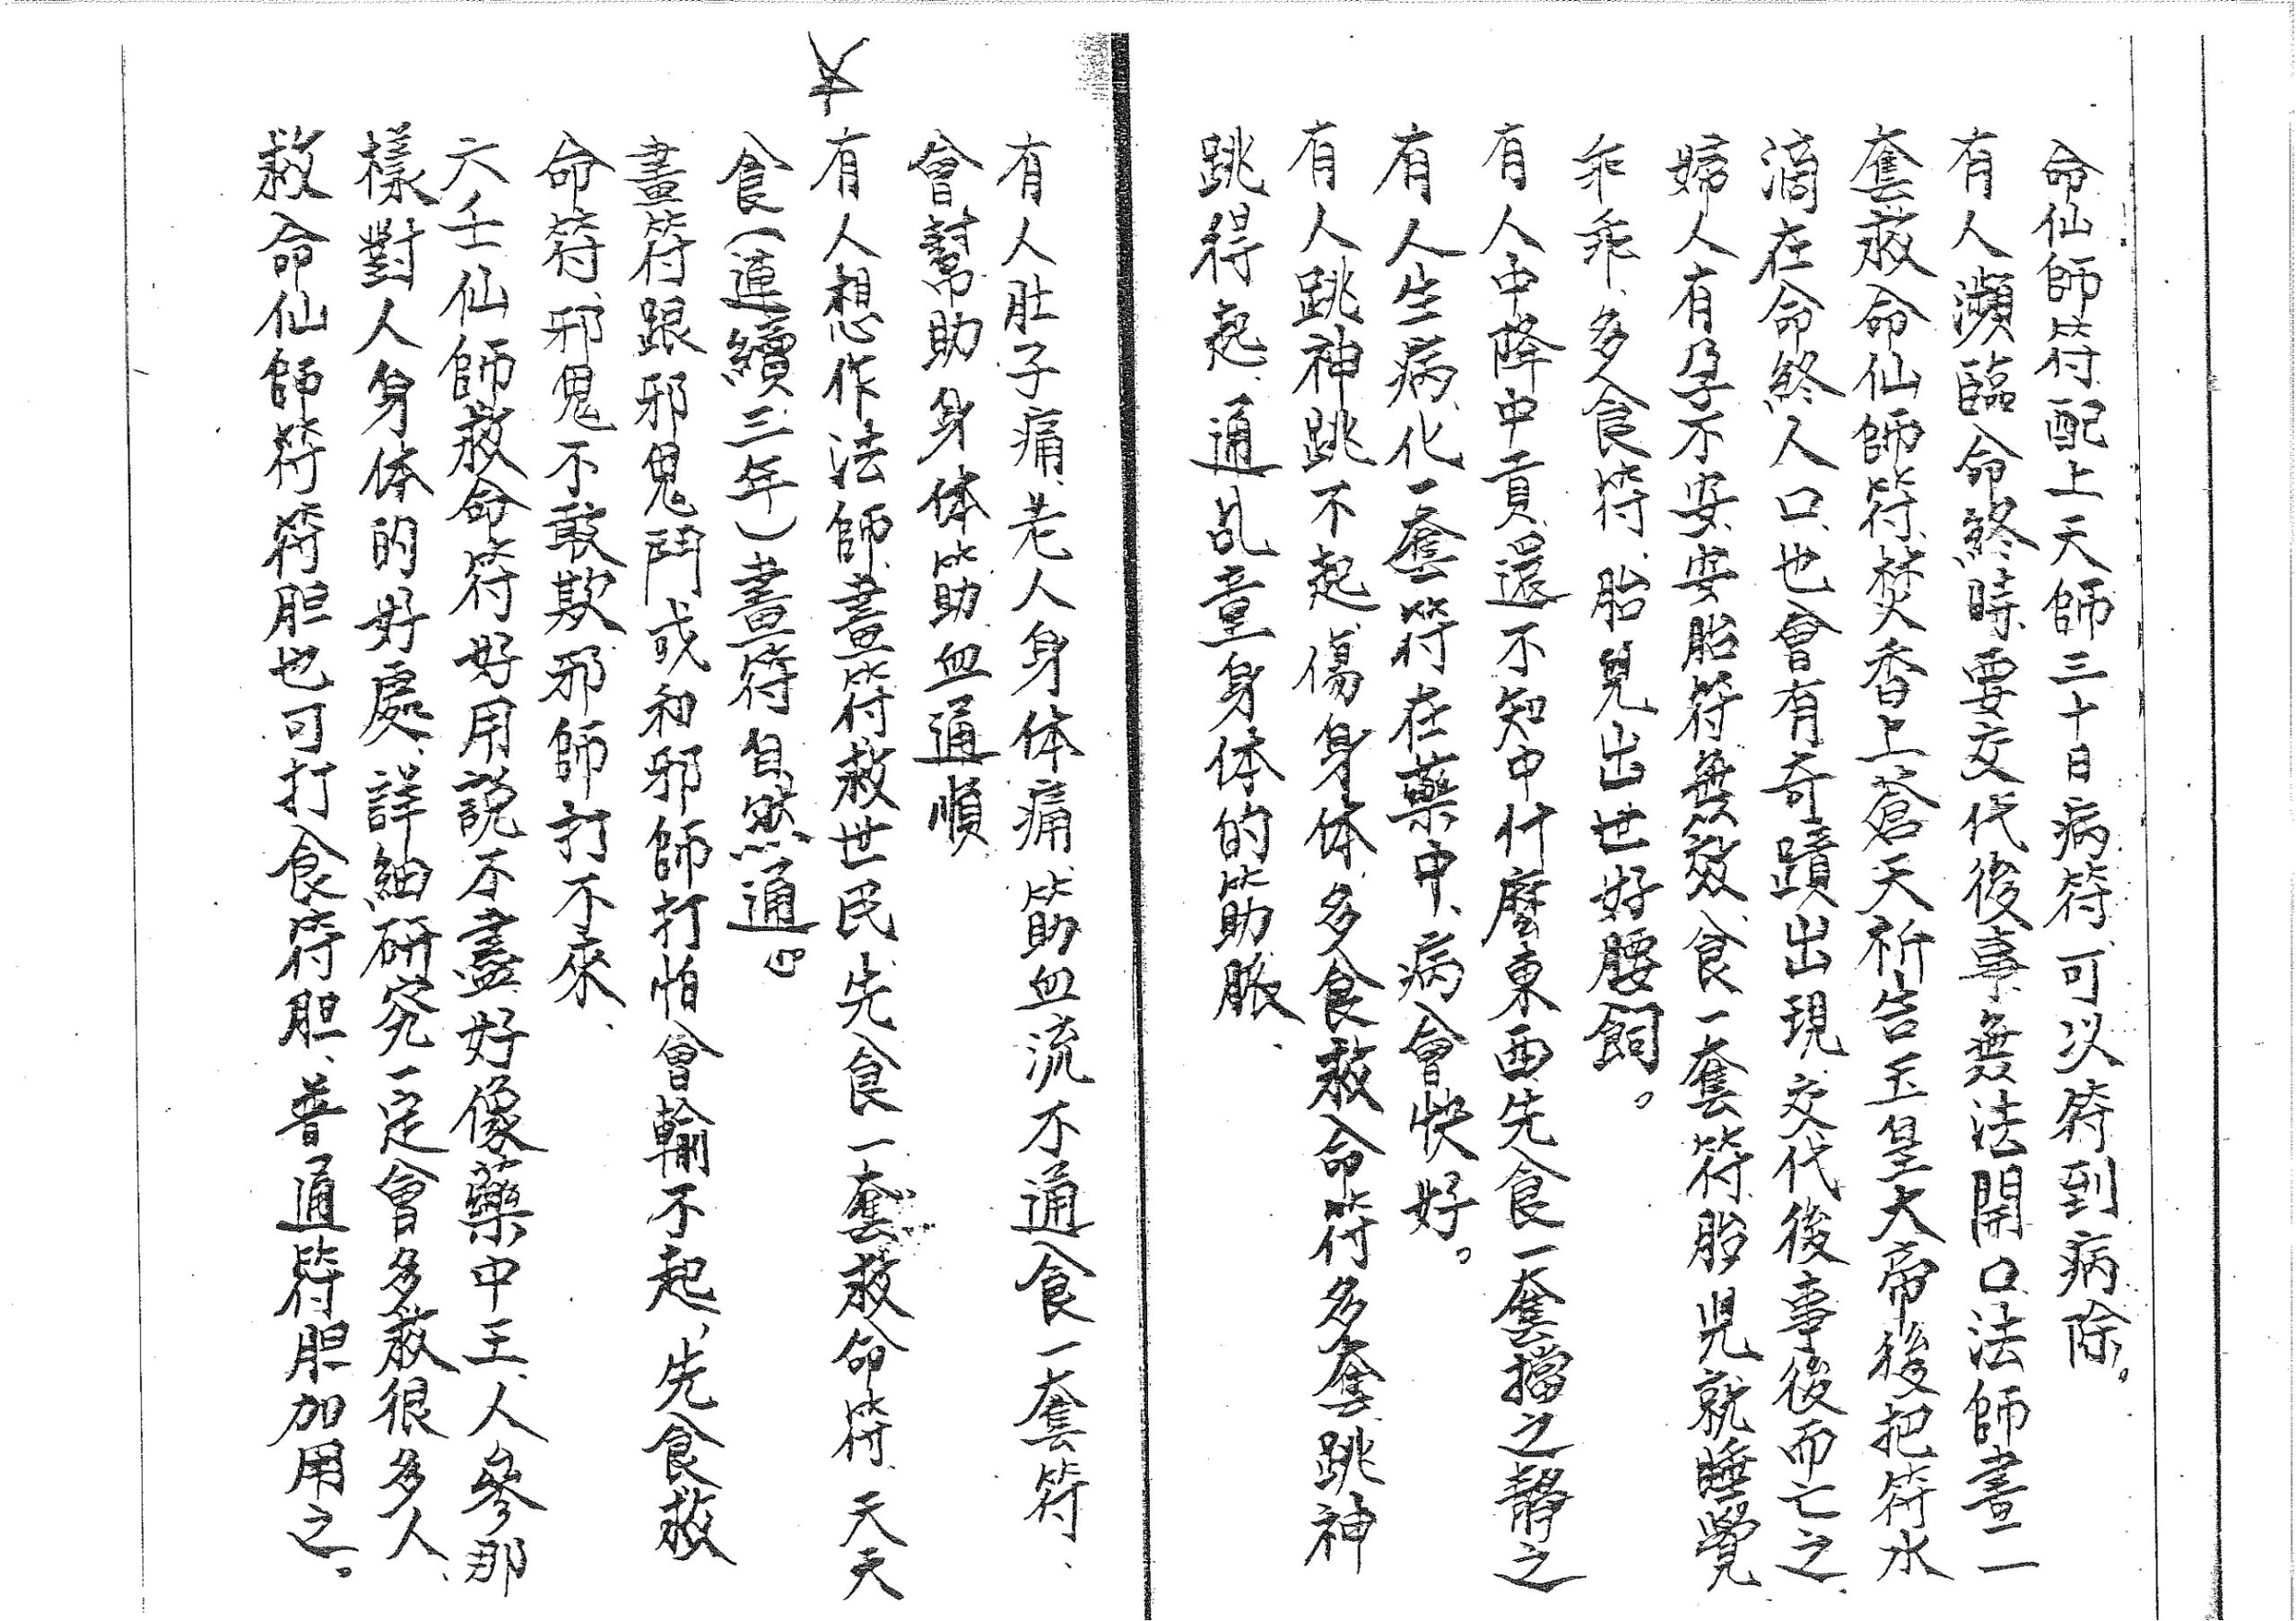 命仙師符、配上天師三十日病符、可以符到病除。
有人瀕臨命終時、要交代後事、無法開口法師畫二
套救命仙師符、焚香上蒼天祈告玉皇大帝後把符水
滴在命終人口、也會有奇蹟出現、交代後事後而亡之、
婦人有孕不安、安胎符無效、食一套符、胎児就睡覺
乖乖、多食符、胎兒出世好腰飼。
有人中降中貢、還不知中什麼東西、先食一套擋之靜之
有人生病、化一套符在藥中、病會快好。
有人跳神跳不起、傷身体、多食救命符多套跳神
跳得起、通乩童身体的筋脹、
有人肚子痛、老人身体痛、筋血流不通食一套符、
會幫助身体筋血通順
有人想作法師、畫符救世民、先食一套救命符、天天
食(連續三年)畫符自然通。
畫符跟邪鬼鬥或和邪師打怕會輸不起、先食救
命符、邪鬼不敢欺邪師打不來、
六壬仙師救命符好用說不盡好像藥中王、人參那
樣對人身体的好處、詳細研究一定會多救很多人、
救命仙師符符胆也可打食符胆、普通符胆加用之。